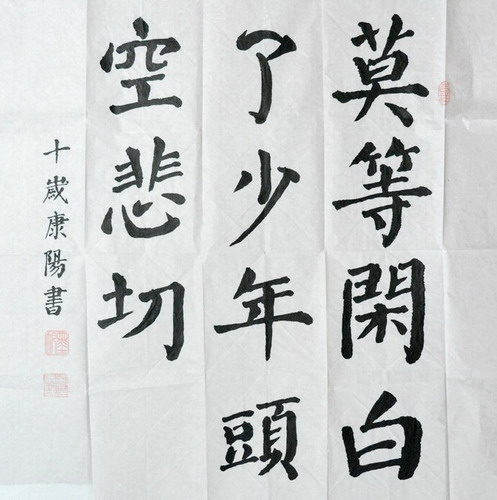 莫等閑白
了少年頭
空悲切
十歲康陽書